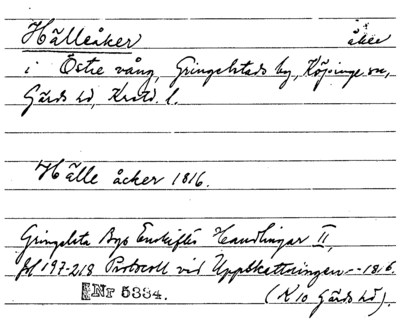 Hälleåker åker
i Östre vång, Gringelstads by, Köpinge sn,
Gärds hd, Krstd. l.
Hälle åcker 1816.
Gringelsta Bys Enskiftes Handlingar II,
fol 197-218 Protocoll vid Uppskattningen -- 1816.
Nr 5334. (K 10 Gärds hd).